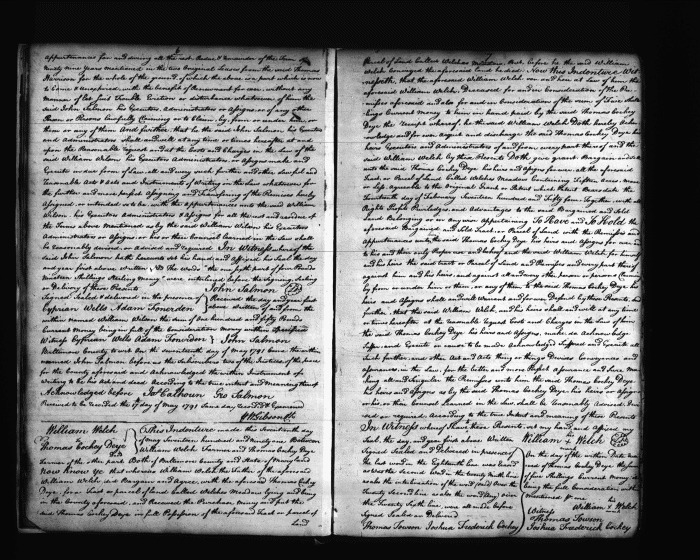 appurtenances for and during all the rest Residue & Remainder of the Term of
Ninety nine Years mentioned in the two Original Leases from the said Thomas
Harrison for the whole of the ground of which the above is a part which is now
to Come & unexpired with the benefit of Renewment for ever without any
manner of Let Suit Trouble Eviction or disturbance whatsoever of him the
said John Salmon his Executors Administrators or Assigns or of any other
Person or Persons Lawfully Claiming or to Claim by, from or under him, or
them or any of them And further that he the said John Salmon, his Executors
and Administrators shall and will at any time or times hereafter at and
upon the Reasonable request and at the Costs and Charges in the Law of the
said William Wilson his Executors Administrators or Assigns make and
Execute in due form of Law all and every such further and other Lawful and
reasonable Act & Acts and Instruments of Writing in the Law whatsoever for
the further and more perfect Assigning and Transferring of the Premises hereby
Assigned or intended so to be with the appurtenances unto the said William
Wilson his Executors Administrators & Assigns for all the rest and residue of
the Term above Mentioned as by the said William Wilson his Executors
Administrators or Assigns or his or their Council learned in the Law shall
be reasonably devised or advised and required In Witness whereof the
said John Salmon hath hereunto set his hand and affixed his Seal the day
and year first above Written
John Salmon
Signed Sealed & delivered in the presence of
Cyprian Wells Adam Fonerden
Received the day and year first
above written of and from the
within named William Wilson the sum of One hundred and fifty Pounds
Current Money being in full of the Consideration Money within
Witness Cyprian Wells Adam Fonerdon
John Salmon
Baltimore County to wit On the Seventeenth day of May 1791 Came the within
named John Salmon before us the Subscribers two of the Justices of the peace
for the County aforesaid and Acknowledged the within Instrument of
Writing to be his Act and deed According to the true intent and meaning thereof
Acknowledged before Ja Calhoun Geo Salmon
Received to be recorded the 17 day of May 1791 Same day recorded & Examined
Wm Gibson Clk
William Welch
to
Thomas Cockey Deye
This Indenture made this Seventeenth day
of May Seventeen hundred and ninety one Between
William Welch Farmer and Thomas Cockey Deye
Farmer of the other part Both of Baltimore County and State of Maryland
Now Know ye that whereas William Welch the Father of the aforesaid
William Welch did Bargain and Agree with the aforesaid Thomas Cockey
Deye for a Tract or parcel of land Called Welches Meadow lying and being
in the County aforesaid and Received the purchase Money and put the
said Thomas Cockey Deye in full Possession of the aforesaid Tract or parcel of
Land
Parcel of Land Called Welches Meadow But before he the said William
Welch Conveyed the aforesaid land he died Now this Indenture Wit
nesseth, that the aforesaid William Welch son and heir at Law of him the
aforesaid William Welch Deceased for and in Consideration of the Pre
mises aforesaid and also for and in Consideration of the sum of Five Shil
lings Current Money to him in hand paid by the said Thomas Cockey
Deye the Receipt whereof he the said William Welch Doth hereby Ackn
owledge and for ever acquit and discharge the said Thomas Cockey Deye his
heirs Executors and Administrators of and from every part thereof and the
said William Welch by these Presents Doth give grant Bargain and
unto the said Thomas Cockey Deye his heirs and assigns for ever all the aforesaid
Tract or Parcel of Land Called Welches Meadow Containing Fifteen Acres more
or less agreeable to the Original Grant or Patent which Patent Bears date the
day of February Seventeen hundred and fifty four Together with all
Rights Profits Priviledges and Advantages to the said Bargained and Sold
Land Belonging or in any wise appertaining To Have and To Hold the
aforesaid Bargained and Sold Tract or Parcel of Land with the Premises and
appurtenances unto the said Thomas Cockey Deye his heirs and Assigns for ever
to his and their only Proper use and behoof and the said William Welch for himself
and his heirs the said tract or Parcel of Land and Premises and every part thereof
against him and his heirs and against all and every other person or persons Claiming
by from or under him or them or any of them to the said Thomas Cockey Deye his
heirs and Assigns shall and will Warrant and forever Defend by these Presents And
further that the said William Welch and his heirs shall and will at any time
or times hereafter at the reasonable request Cost and Charges in the Law of him
the said Thomas Cockey Deye his heirs and Assigns make do Acknowledge
Suffer and Execute or cause to be made Acknowledged Suffered and Executed all
such further and other Act and Acts thing or things Devices Conveyances and
assurances in the Law for the better and more Perfect assurance and Sure Ma
king all and Singular the Premises unto him the said Thomas Cockey Deye
his heirs and Assigns as by the said Thomas Cockey Deye his heirs or Assigns
or his or their Counsel learned in the Law shall be reasonably devised advis
ed or required According to the true intent and meaning of these Presents
In Witness whereof I have hereunto set my hand and affixed my
Seal the day and year first above Written
William Welch
Signed Sealed and Delivered in presence of
Signed Sealed and Delivered
Thomas Towson Joshua Frederick Cockey
On the day of the within Date
received of Thomas Cockey Deye the sum
of five Shillings Current Money
being the full Consideration within
mentioned by me
his
William X Welch
Witness
Thomas Towson
Joshua Frederick Cockey